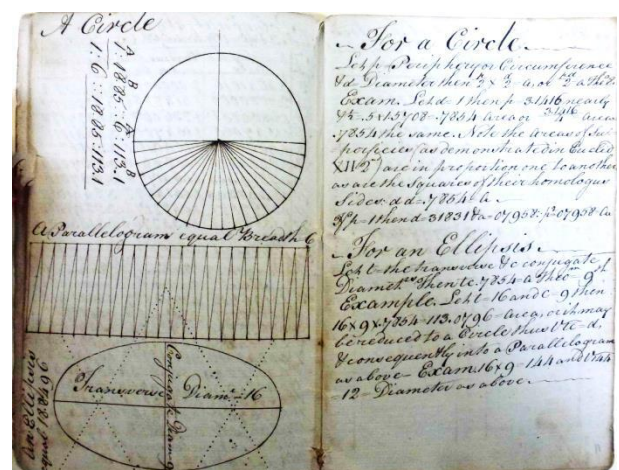 A Circle
A B
1 : 18.85 :: 6 : 113.1
1 : 6 :: 18.85 : 113.1
A Parallelogram equal Breadth 6
Transverse Diamr = 16
Conjugate Diam 9
an Ellipsis
equal
For a Circle
Let p = Periphery or Circumference
& d = Diameter then p/2 × d/2 = a, or
Exam. Let d = 1 then p = 3.1416 nearly
& .5 × 1.5708 = .7854 area or 3.1416 area
.7854 the same. Note the areas of Su-
perficies (as demonstrated in Euclid
XII 2) are in proportion one to another
as are the Squares of their homologus
Sides: dd × .7854 = a.
If p = 1 then d = .31831 & a = .07958
For an Ellipsis
Let t = the transverse & c conjugate
Diametrs Then tc × .7854 = a
Example. Let t = 16 and c = 9 then
16 × 9 × .7854 = 113.0976 = area, or it may
be reduced to a Circle thus √tc = d,
& consequently into a Parallelogram
as above = Exam. 16 × 9 = 144 and √144
12 = Diameter as above